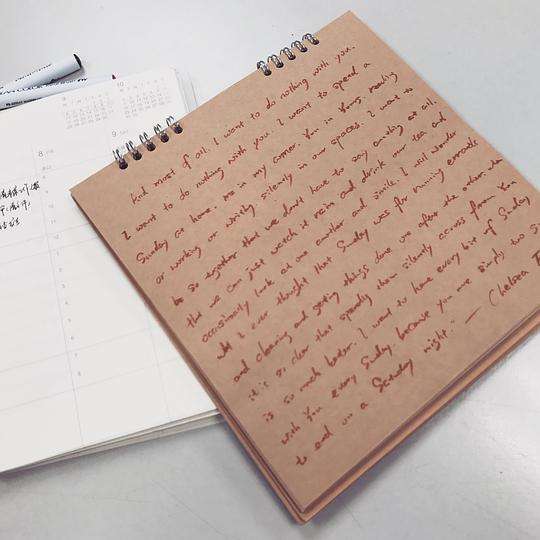 And most of all. I want to do nothing with you.
I want to do nothing with you. I want to spend a
Sunday at home. me in my corner. You in Yours. reading
or working or writing silently in our spaces. I want to
be so together that we don't have to say anything at all.
that we can just watch it rain and drink our tea and
occasionally look at one another and smile. I will wonder
why I ever thought that Sunday was for running errands
and cleaning and getting things done one after the other. when
it is so clear that spending them silently across from You
is so much better. I want to have every bit of Sunday
with You every Sunday. because you are simply too
to end on a Saturday night. — Chelsea
8
9
10